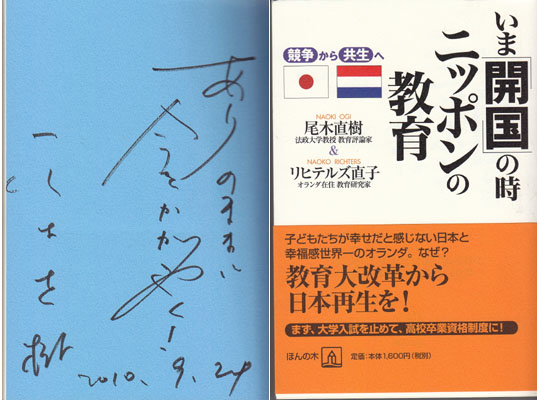 ありのままに
今をかがやく!
尾木直樹
2010.9.24
競争から共生へ
いま「開国」の時
ニッポンの
教育
NAOKI OGI
尾木直樹
法政大学教授 教育評論家
&
NAOKO RICHTERS
リヒテルズ直子
オランダ在住 教育研究家
子どもたちが幸せだと感じない日本と
幸福感世界一のオランダ。なぜ?
教育大改革から
日本再生を!
まず、大学入試を止めて、高校卒業資格制度に!
ほんの木
定価:本体1,600円(税別)